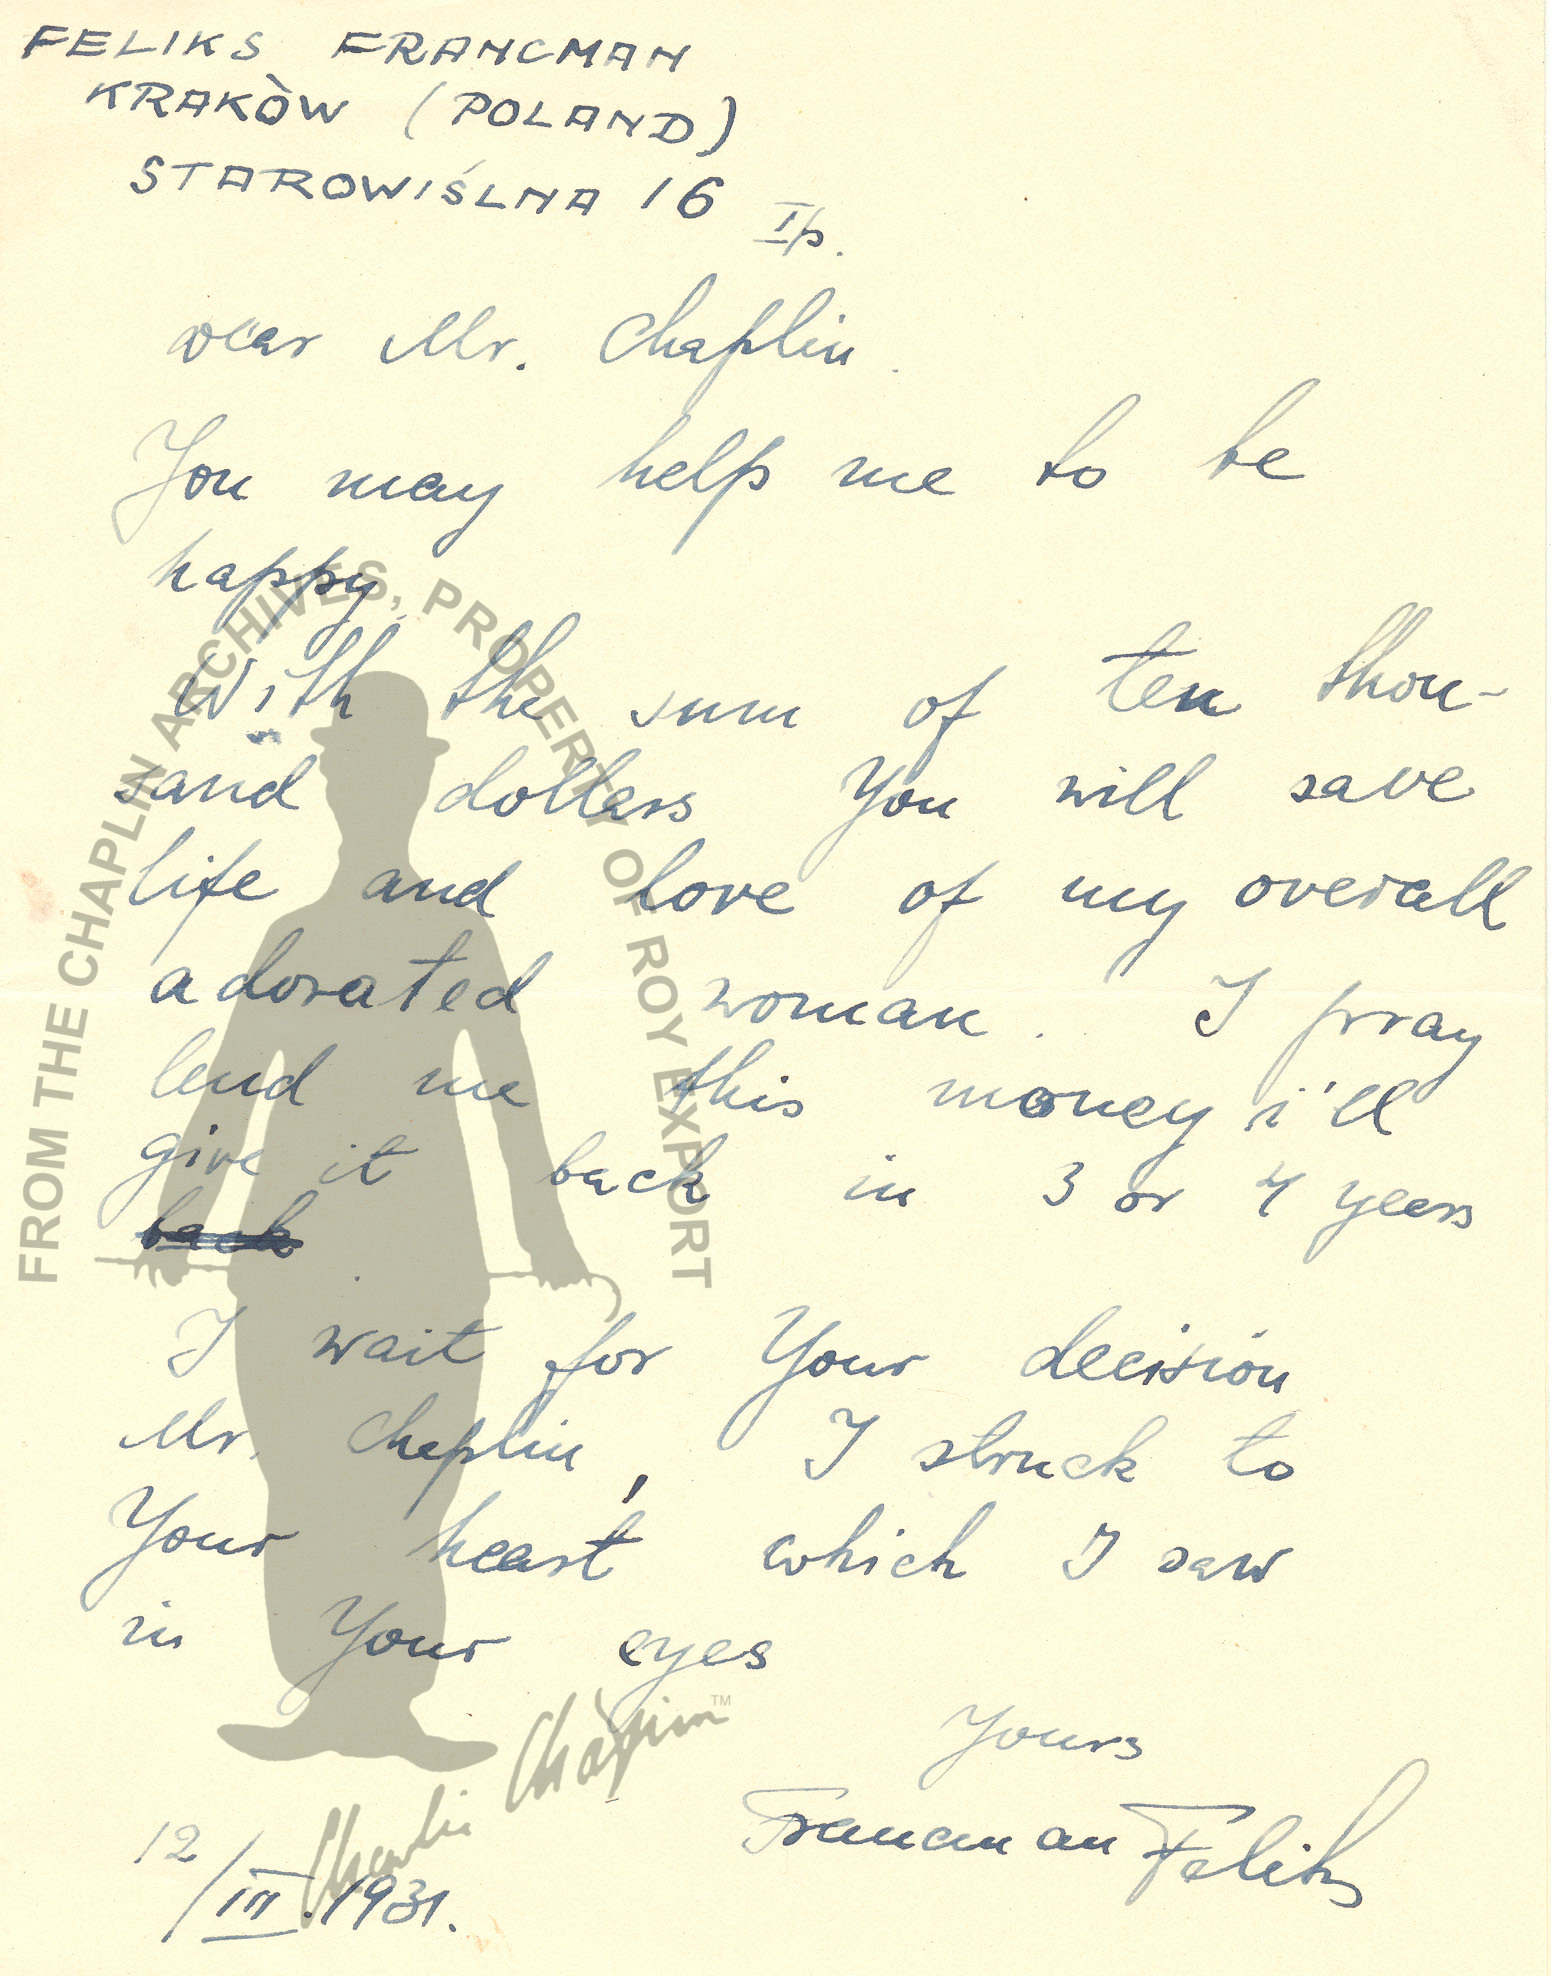 FELIKS FRANCMAN
KRAKÒW (POLAND)
STAROWIŚLNA 16 I p.
dear Mr. Chaplin.
You may help me to be
happy.
With the sum of ten thou-
sand dollars You will save
life and love of my overall
adorated woman. I pray
lend me this money i'll
give it back in 3 or 4 years
back.
I wait for Your decision
Mr. Chaplin, I struck to
Your heart which I saw
in Your eyes
Yours
Francman Feliks
12/III.1931.
FROM THE CHAPLIN ARCHIVES, PROPERTY OF ROY EXPORT
Charlie Chaplin™